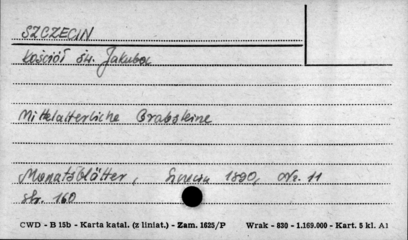 SZCZECIN
Kościół św. Jakuba
Mittelalterliche Grabsteine
Monatsblätter, 1890, Nr. 11
str. 160
CWD - B 15b - Karta katal. (z liniat.) - Zam. 1625/P Wrak - 830 - 1.169.000 - Kart. 5 kl. A1